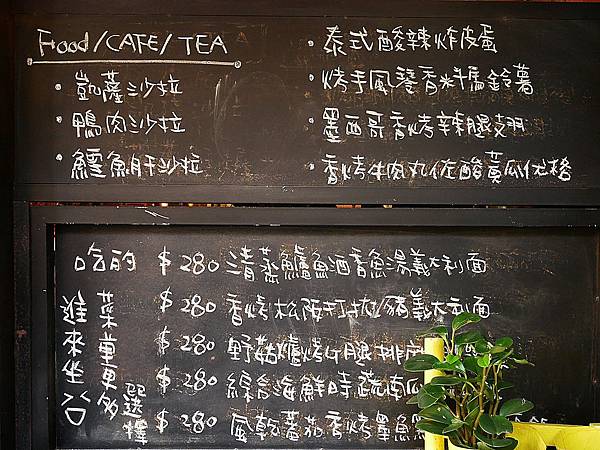 Food/CAFE/TEA
·凱薩沙拉
·鴨肉沙拉
·鱷魚肝沙拉
·泰式酸辣炸皮蛋
·烤手風琴香料馬鈴薯
·墨西哥香烤辣腿翅
·香烤牛肉丸佐酸黃瓜优格
吃的
$280 清蒸鱸魚酒香魚湯義大利面
$280 香烤松阪打拋豬義大利面
$280 野菇爐烤
$280 綜合海鮮時蔬南瓜
$280 風乾蕃茄香烤墨魚
進來坐公
菜單更多
選擇